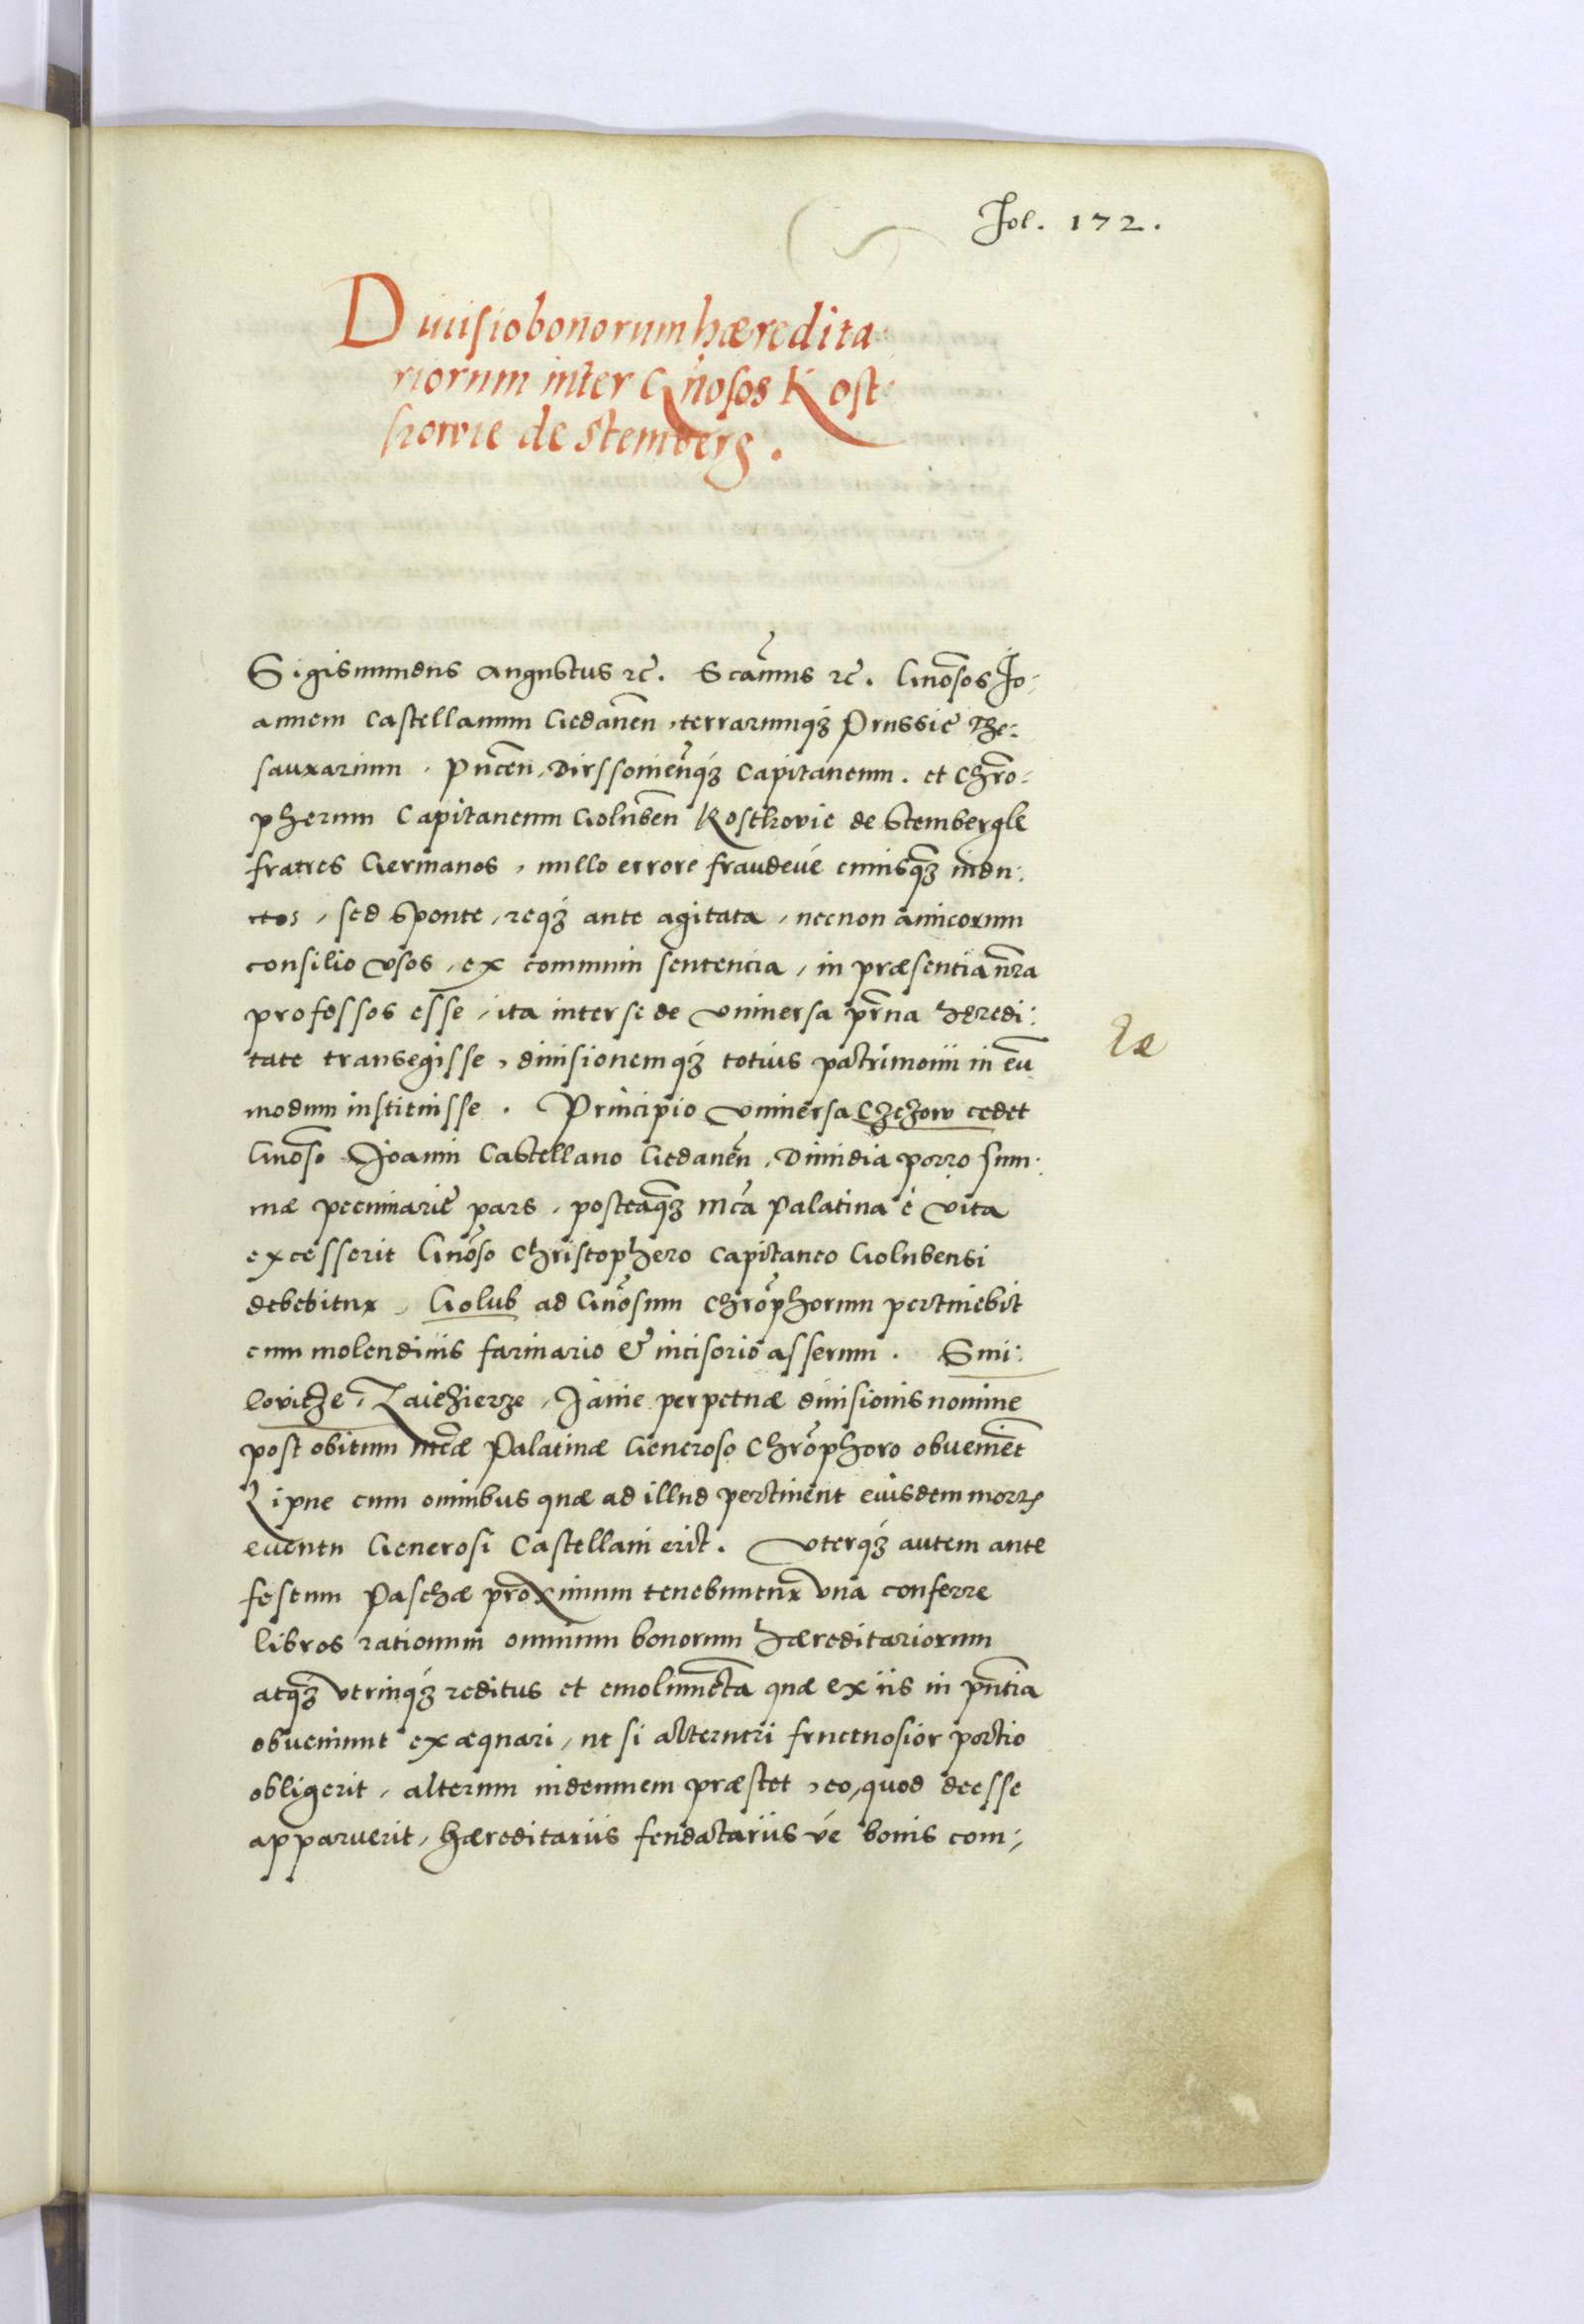 Fol. 172.
Diuisio bonorum hæredita:
riorum inter Gn̄osos Kost:
kowie de Stemberg.
Sigismundus Augustus ꝛc̄. Scām̄us ꝛc̄. Gn̄osos Jo:
annem Castellanum Gedanēn, terrarumqꝫ Prussię The:
saurarium, Pucēn, Dirssouiēn̄qꝫ Capitaneum. et Chr̄o:
pherum Capitaneum Golubēn Kostkovie de Stembergk
fratres Germanos, nullo errore fraudeué cuiusqꝫ indu:
ctos, sed sponte, reqꝫ ante agitata, necnon amicorum
consilio vsos, ex communi sententia, in præsentia nr̄a
professos esse, ita inter se de vniuersa pr̄na heredi:
tate transegisse, diuisionemqꝫ totius patrimonii in eū
modum instituisse. Principio vniuersa Czczow cedet
Gn̄oso Joanni Castellano Gedanēn, Dimidia porro sum:
mæ pecuniarię pars, posteaqꝫ Mc̄a Palatina è vita
excesserit Gn̄oso Christophero Capitaneo Golubensi
debebitur, Golub ad Gn̄osum Chrōphorum pertinebit
cum molendinis farinario & incisorio asserum. Smi:
lovicze, Zaiezierze, Janie perpetuæ diuisionis nomine
post obitum Mc̄æ Palatinæ Generoso Chrōphoro obuenien̄t
Lipne cum omnibus quæ ad illud pertinent eiusdem mortꝭ
euentu Generosi Castellani erit. Vterqꝫ autem ante
festum Paschæ proximum tenebuntur vna conferre
libros rationum omnium bonorum hæreditariorum
atqꝫ vtrinqꝫ reditus et emolumēta quæ ex iis in pn̄tia
obueniunt exæquari, ut si alterutri fructuosior portio
obtigerit, alterum indemnem præstet, eo, quod deesse
apparuerit, hæreditariis feudatariis vé bonis com: